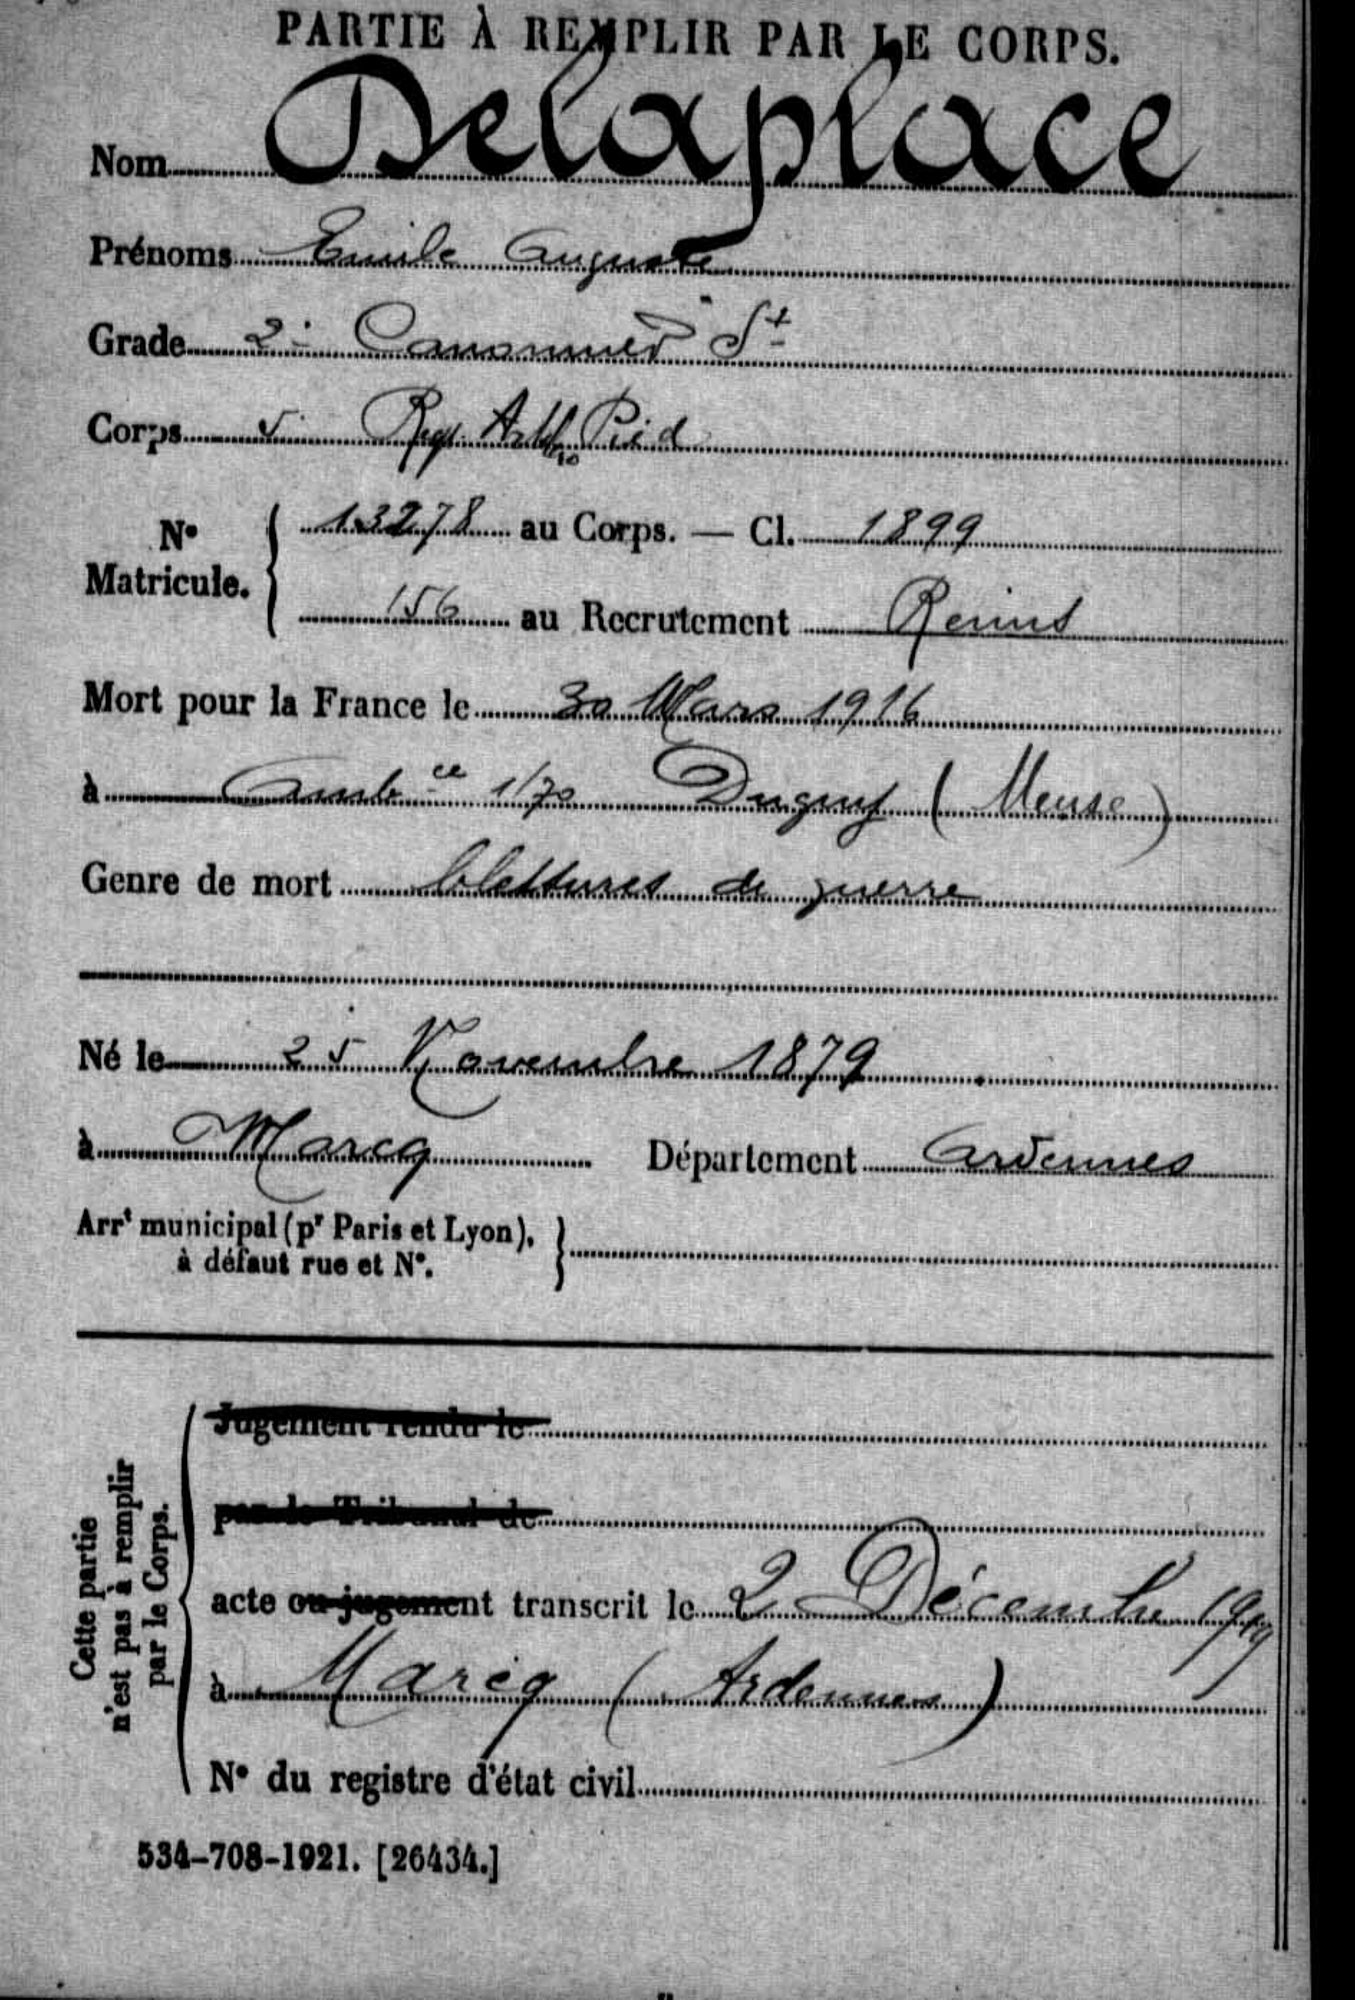 PARTIE À REMPLIR PAR LE CORPS.
Nom Delaplace
Prénoms Emile Auguste
Grade 2e Canonnier St
Corps 5e Regt Artie Pied
N° Matricule. 13278 au Corps. — Cl. 1899
156 au Recrutement Reims
Mort pour la France le 30 Mars 1916
à Ambce 1/70 Dugny (Meuse)
Genre de mort blessures de guerre
Né le 25 Novembre 1879
à Marcq Département Ardennes
Arrt municipal (pr Paris et Lyon),
à défaut rue et N°.
Cette partie
n'est pas à remplir
par le Corps.
Jugement rendu le
par le Tribunal de
acte ou jugement transcrit le 2 Décembre 1919
à Marcq (Ardennes)
N° du registre d'état civil
534-708-1921. [26434.]